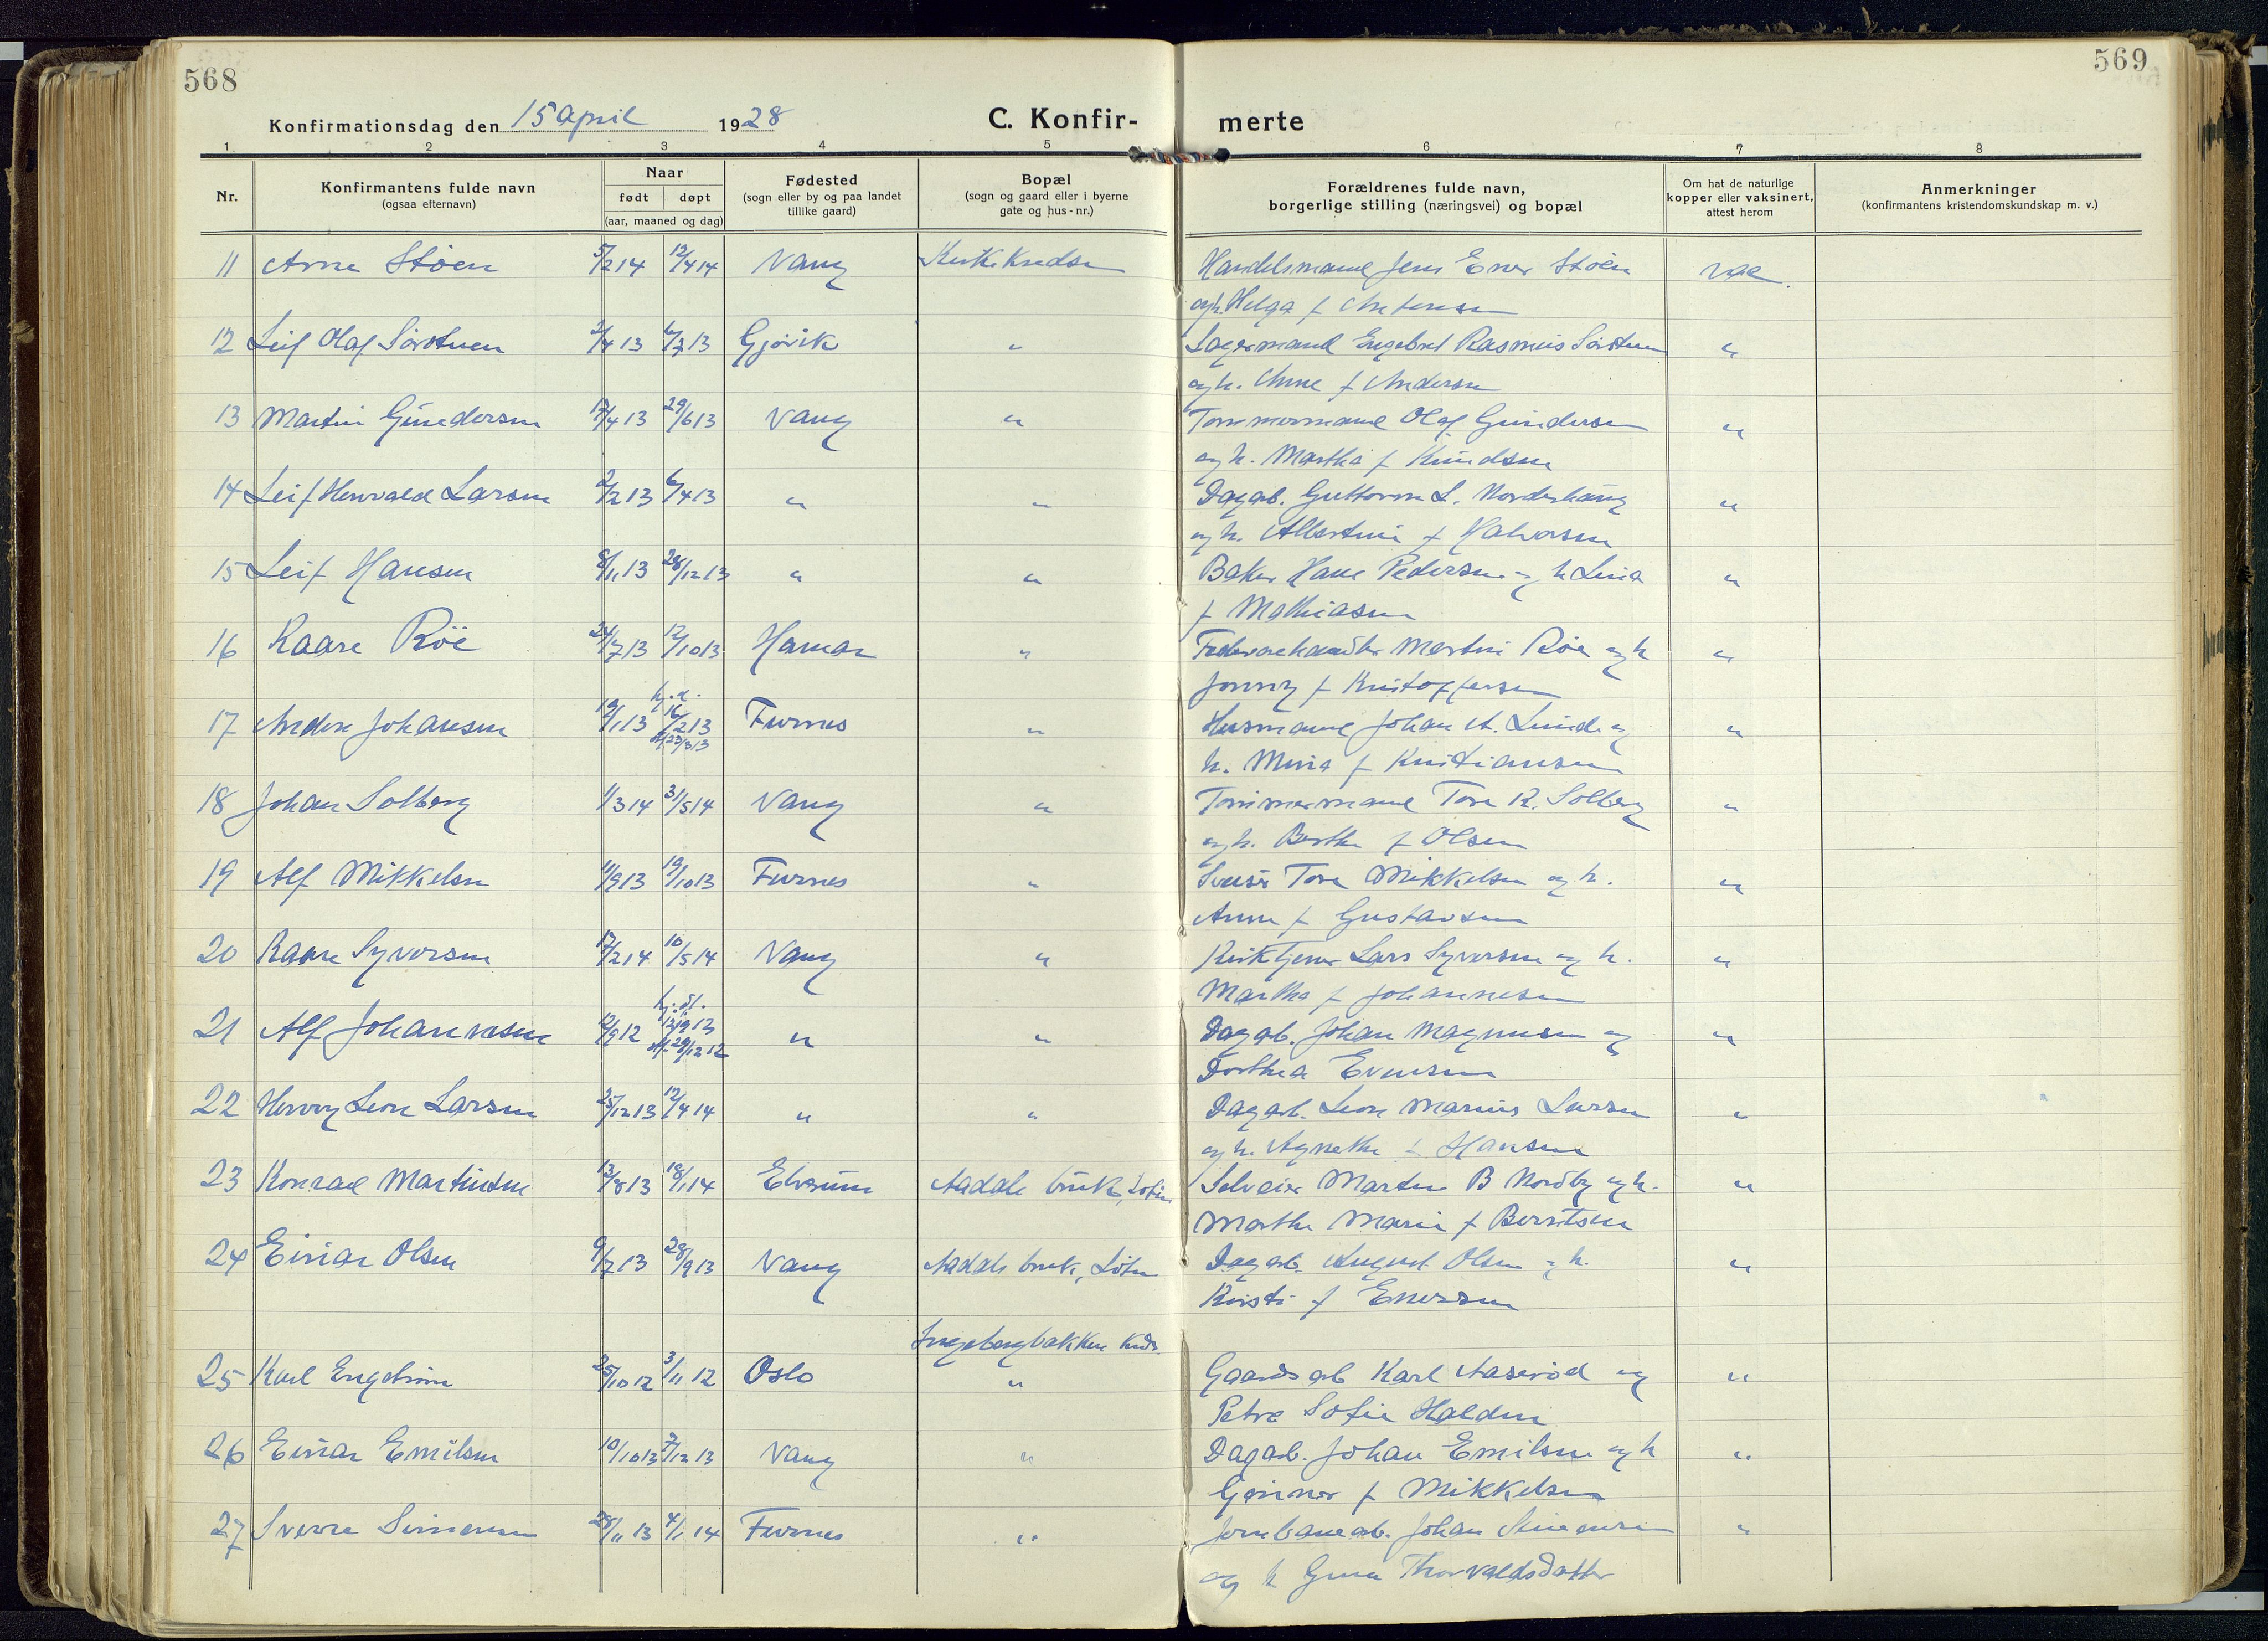 568
569
Konfirmationsdag den 15 April 1928
C. Konfir-
merte
1 2 3 4 5 6 7 8
Nr.
Konfirmantens fulde navn
(ogsaa efternavn)
Naar
født døpt
(aar, maaned og dag)
Fødested
(sogn eller by og paa landet
tillike gaard)
Bopæl
(sogn og gaard eller i byerne
gate og hus-nr.)
Forældrenes fulde navn,
borgerlige stilling (næringsvei) og bopæl
Om hat de naturlige
kopper eller vaksinert,
attest herom
Anmerkninger
(konfirmantens kristendomskundskap m. v.)
11 Arne Støen 5/2 14 12/4 14 Vang Kirkekredsen Handelsmand Jens Ener Støen vac.
og h. Helga f
12 Leif Olaf Sörstuen 2/4 13 6/7 13 Gjövik " Lagermand Engebret Rasmus Sörstuen "
og h. Anne f Andersen
13 Martin Gundersen 17/4 13 29/6 13 Vang " Tømmermand Olaf Gundersen "
og h. Martha f Knudsen
14 Leif Hervald Larsen 2/2 13 6/4 13 " " Dagarb. Guttorm L. Norderhaug "
og h. Albertine f Halvorsen
15 Leif Hansen 8/11 13 28/12 13 " " Baker Hans Pedersen og h Lina "
f Mathiasen
16 Kaare Röe 24/7 13 12/10 13 Hamar " Martin Röe og h "
Jenny f Kristoffersen
17 Anders Johansen 19/1 13 hj.d. 16/2 13 Furnes " Husmand Johan A. Lund og "
23/3 13
h. Mina f Kristiansen
18 Johan Solberg 1/3 14 31/5 14 Vang " Tømmermand Tore K. Solberg "
og h. Berthe f Olsen
19 Alf Mikkelsen 11/9 13 19/10 13 Furnes " Tore Mikkelsen og h. "
Anne f Gustavsen
20 Kaare Syversen 17/2 14 10/5 14 Vang " Kirketjener Lars Syversen og h. "
Martha f Johannesen
21 Alf Johannesen 12/9 12 hj. d. 13/9 12 " " Dagarb. Johan Magnusen og "
29/12 12
Dorthea Evensen
22 Henry Leon Larsen 25/12 13 12/4 14 " " Dagarb. Leon Marius Larsen "
og h. Agnethe f Hansen
23 Konrad Martinsen 13/8 13 18/1 14 Elverum Aadals bruk, Löten Selveier Martin B Nordby og h. "
Marthe Marie f Berntsen
24 Einar Olsen 9/7 13 28/9 13 Vang Aadals bruk, Löten Dagarb. August Olsen og h. "
Kirsti f Enersen
Ingebergbakken kreds.
25 Karl Engström 25/10 12 3/11 12 Oslo " Gaardsarb Karl Aaseröd og "
Petra Sofie Halden
26 Einar Emilsen 10/10 13 7/12 13 Vang " Dagarb. Johan Emilsen og h "
Gunner f Mikkelsen
27 Sverre Simensen 28/11 13 4/1 14 Furnes " Jernbanearb. Johan Simensen "
og h Gina Thorvaldsdatter